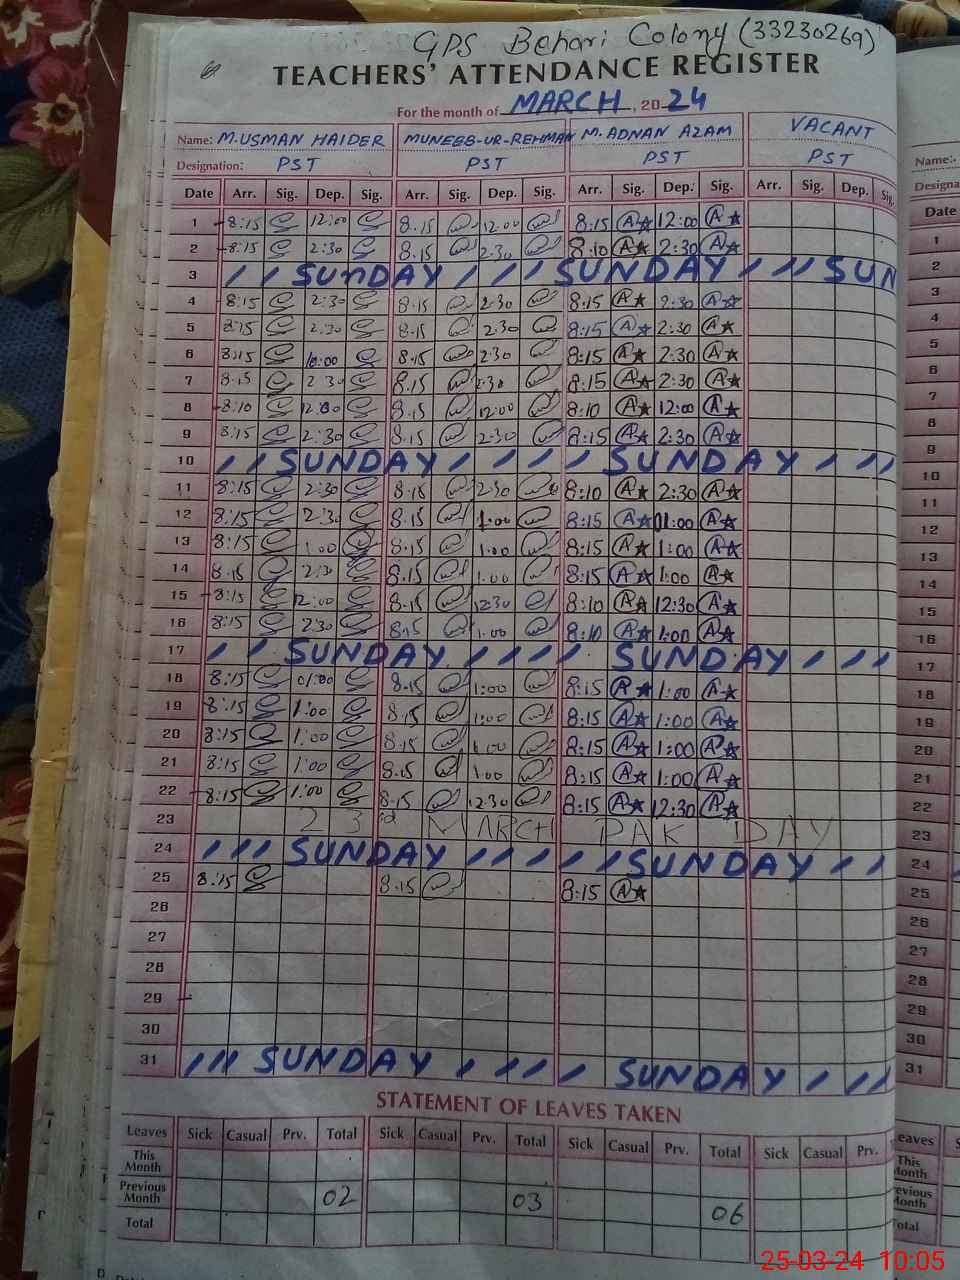 GPS Behari Colony (33230269)
TEACHERS' ATTENDANCE REGISTER
For the month of MARCH, 2024
Name: M.USMAN HAIDER MUNEEB-UR-REHMAN M. ADNAN AZAM VACANT Name:-
Designation: PST PST PST PST Designa
Date Arr. Sig. Dep. Sig. Arr. Sig. Dep. Sig. Arr. Sig. Dep. Sig. Arr. Sig. Dep. Sig. Date
1 8:15 12:00 8.15 12.00 8:15 A 12:00 A 1
2 8:15 2:30 8.15 2.30 8:10 A 2:30 A 2
3 SUNDAY SUNDAY SUN 3
4 8:15 2:30 8.15 2.30 8:15 A 2:30 A 4
5 8:15 2:30 8.15 2.30 8:15 A 2:30 A 5
6 8:15 8.15 2.30 8:15 A 2:30 A 6
7 8.15 2 30 8.15 2.30 8:15 A 2:30 A 7
8 8:10 12:00 8.15 12:00 8:10 A 12:00 A 8
9 8:15 2:30 8.15 2.30 8:15 A 2:30 A 9
10 SUNDAY SUNDAY 10
11 8:15 2:30 8.15 2.30 8:10 A 2:30 A 11
12 8:15 2:30 8.15 1:00 8:15 A 01:00 A 12
13 8:15 1:00 8.15 1:00 8:15 A 1:00 A 13
14 8.15 2:30 8.15 1.00 8:15 A 1:00 A 14
15 8:15 12:00 8.15 12:30 8:10 A 12:30 A 15
16 8:15 2:30 8.15 1.00 8:10 A 1:00 A 16
17 SUNDAY SUNDAY 17
18 8:15 01:00 8.15 1:00 8:15 A 1:00 A 18
19 8:15 1:00 8.15 1:00 8:15 A 1:00 A 19
20 8:15 1:00 8.15 1.00 8:15 A 1:00 A 20
21 8:15 1:00 8.15 1.00 8:15 A 1:00 A 21
22 8:15 1:00 8.15 12.30 8:15 A 12:30 A 22
23 23rd MARCH PAK DAY 23
24 SUNDAY SUNDAY 24
25 8:15 8.15 8:15 A 25
26 26
27 27
28 28
29 29
30 30
31 SUNDAY SUNDAY 31
STATEMENT OF LEAVES TAKEN
Leaves Sick Casual Prv. Total Sick Casual Prv. Total Sick Casual Prv. Total Sick Casual Prv. eaves
This Month This Month
Previous Month 02 03 06 evious Month
Total otal
25-03-24 10:05